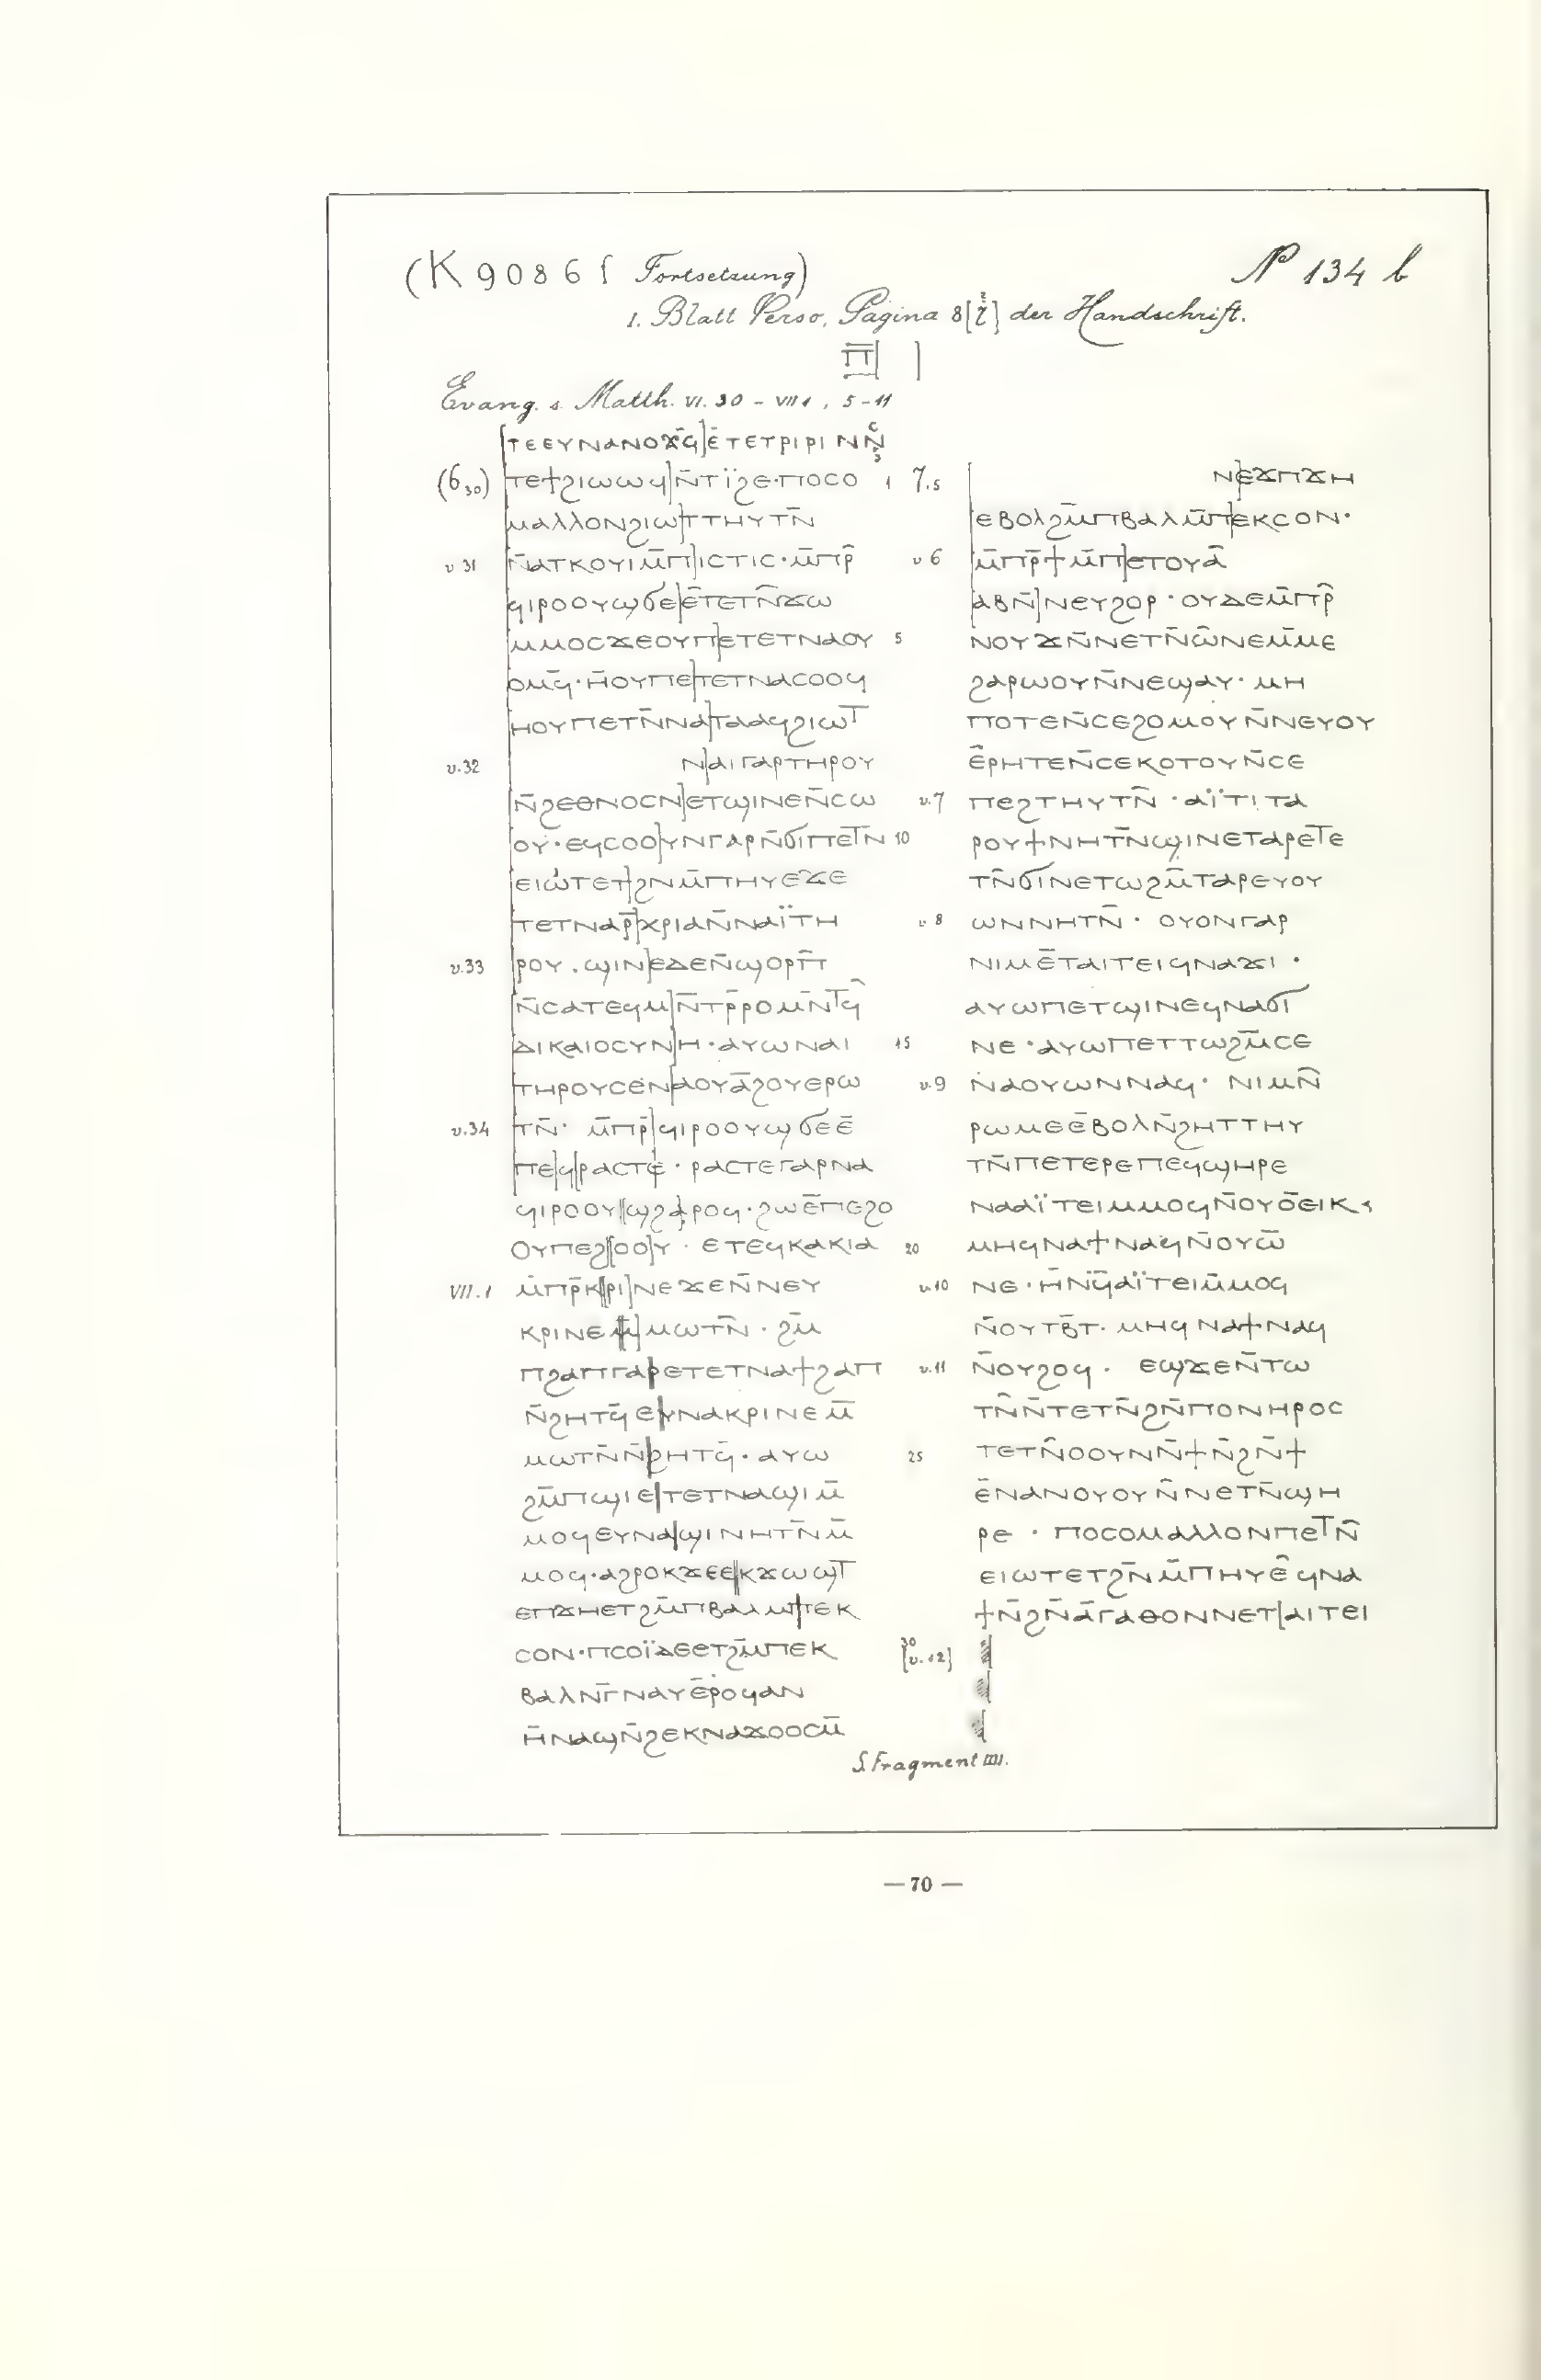 (K 9086 f Fortsetzung) № 134 b
1. Blatt Verso, Pagina 8[2/?] der Handschrift.
ⲡ̅[ ]
Evang. s. Matth. VI. 30 – VII 1, 5–11
[ⲧⲉⲉⲩⲛⲁⲛⲟϫϥ̄]ⲉ̄ⲧⲉⲧⲣⲓⲣⲓⲛⲛ̄
(6 30) ⲧⲉϯϩⲓⲱⲱϥ]ⲛ̄ⲧⲓ̈ϩⲉ·ⲡⲟⲥⲟ 1
ⲙⲁⲗⲗⲟⲛϩⲓⲱ]ⲧⲧⲏⲩⲧⲛ̄
v 31 ⲛ̄ⲁⲧⲕⲟⲩⲓⲙ̄ⲡ]ⲓⲥⲧⲓⲥ·ⲙ̄ⲡⲣ̄
ϥⲓⲣⲟⲟⲩϣϭⲉ]ⲉ̄ⲧⲉⲧⲛ̄ϫⲱ
ⲙⲙⲟⲥϫⲉⲟⲩⲡ]ⲉⲧⲉⲧⲛⲁⲟⲩ 5
ⲟⲙϥ̄·ⲏ̄ⲟⲩⲡⲉ]ⲧⲉⲧⲛⲁⲥⲟⲟϥ
ⲏⲟⲩⲡⲉⲧⲛ̄ⲛⲁ]ⲧⲁⲁϥϩⲓⲱⲧ
v.32 ⲛ]ⲁⲓⲅⲁⲣⲧⲏⲣⲟⲩ
ⲛ̄ϩⲉⲑⲛⲟⲥⲛ]ⲉⲧϣⲓⲛⲉⲛ̄ⲥⲱ
ⲟⲩ·ⲉϥⲥⲟⲟ]ⲩⲛⲅⲁⲣⲛ̄ϭⲓⲡⲉⲧⲛ̄ 10
ⲉⲓⲱⲧⲉⲧ]ϩⲛⲙ̄ⲡⲏⲩⲉϫⲉ
ⲧⲉⲧⲛⲁⲣ̄]ⲭⲣⲓⲁⲛ̄ⲛⲁⲓ̈ⲧⲏ
v.33 ⲣⲟⲩ.ϣⲓⲛ]ⲉⲇⲉⲛ̄ϣⲟⲣⲡ̄
ⲛ̄ⲥⲁⲧⲉϥⲙ]ⲛ̄ⲧⲣ̄ⲣⲟⲙⲛ̄ⲧϥ̄
ⲇⲓⲕⲁⲓⲟⲥⲩⲛ]ⲏ·ⲁⲩⲱⲛⲁⲓ 15
ⲧⲏⲣⲟⲩⲥⲉⲛ]ⲁⲟⲩⲁ̄ϩⲟⲩⲉⲣⲱ
v.34 ⲧⲛ̄· ⲙ̄ⲡⲣ̄]ϥⲓⲣⲟⲟⲩϣϭⲉⲉ̄
ⲡⲉϥ]ⲣⲁⲥⲧⲉ·ⲣⲁⲥⲧⲉⲅⲁⲣⲛⲁ
ϥⲓⲣⲟⲟⲩ[ϣϩⲁ]ⲣⲟϥ·ϩⲱⲉ̄ⲡⲉϩⲟ
ⲟⲩⲡⲉϩ[ⲟⲟ]ⲩ·ⲉⲧⲉϥⲕⲁⲕⲓⲁ 20
VII.1 ⲙ̄ⲡⲣ̄ⲕ[ⲣⲓ]ⲛⲉϫⲉⲛ̄ⲛⲉⲩ
ⲕⲣⲓⲛⲉⲙ̄]ⲙⲱⲧⲛ̄·ϩⲙ̄
ⲡϩⲁⲡⲅⲁⲣⲉⲧⲉⲧⲛⲁϯϩⲁⲡ
ⲛ̄ϩⲏⲧϥ̄ⲉⲩⲛⲁⲕⲣⲓⲛⲉⲙ̄
ⲙⲱⲧⲛ̄ⲛ̄ϩⲏⲧϥ̄·ⲁⲩⲱ 25
ϩⲙ̄ⲡϣⲓⲉ|ⲧⲉⲧⲛⲁϣⲓⲙ̄
ⲙⲟϥⲉⲩⲛⲁ|ϣⲓⲛⲏⲧⲛ̄ⲙ̄
ⲙⲟϥ·ⲁϩⲣⲟⲕϫⲉⲉ|ⲕϫⲱϣⲧ
ⲉⲡϫⲏⲉⲧϩⲙ̄ⲡⲃⲁⲗⲙⲡⲉⲕ
ⲥⲟⲛ·ⲡⲥⲟⲓ̈ⲇⲉⲉⲧϩⲙ̄ⲡⲉⲕ 30
ⲃⲁⲗⲛⲅ̄ⲛⲁⲩⲉ̄ⲣⲟϥⲁⲛ
ⲏ̄ⲛⲁϣⲛ̄ϩⲉⲕⲛⲁϫⲟⲟⲥⲙ̄
7.5 ⲛ]ⲉϫⲡϫⲏ
ⲉⲃⲟⲗϩⲙ̄ⲡⲃⲁⲗⲙ̄ⲡ]ⲉⲕⲥⲟⲛ·
v 6 ⲙ̄ⲡⲣ̄ϯⲙ̄ⲡ]ⲉⲧⲟⲩⲁ̄
ⲁⲃⲛ̄]ⲛⲉⲩϩⲟⲣ·ⲟⲩⲇⲉⲙ̄ⲡⲣ̄
ⲛⲟⲩϫⲛ̄ⲛⲉⲧⲛ̄ⲱ̄ⲛⲉⲙ̄ⲙⲉ
ϩⲁⲣⲱⲟⲩⲛ̄ⲛⲉϣⲁⲩ·ⲙⲏ
ⲡⲟⲧⲉⲛ̄ⲥⲉϩⲟⲙⲟⲩⲛ̄ⲛⲉⲩⲟⲩ
ⲉ̄ⲣⲏⲧⲉⲛ̄ⲥⲉⲕⲟⲧⲟⲩⲛ̄ⲥⲉ
v.7 ⲡⲉϩⲧⲏⲩⲧⲛ̄·ⲁⲓ̈ⲧⲓⲧⲁ
ⲣⲟⲩϯⲛⲏⲧⲛ̄ϣⲓⲛⲉⲧⲁⲣⲉⲧⲉ
ⲧⲛ̄ϭⲓⲛⲉⲧⲱϩⲙ̄ⲧⲁⲣⲉⲩⲟⲩ
v 8 ⲱⲛⲛⲏⲧⲛ̄· ⲟⲩⲟⲛⲅⲁⲣ
ⲛⲓⲙⲉ̄ⲧⲁⲓⲧⲉⲓϥⲛⲁϫⲓ·
ⲁⲩⲱⲡⲉⲧϣⲓⲛⲉϥⲛⲁϭⲓ
ⲛⲉ·ⲁⲩⲱⲡⲉⲧⲧⲱϩⲙ̄ⲥⲉ
v.9 ⲛⲁⲟⲩⲱⲛⲛⲁϥ· ⲛⲓⲙⲛ̄
ⲣⲱⲙⲉⲉ̄ⲃⲟⲗⲛ̄ϩⲏⲧⲧⲏⲩ
ⲧⲛ̄ⲡⲉⲧⲉⲣⲉⲡⲉϥϣⲏⲣⲉ
ⲛⲁⲁⲓ̈ⲧⲉⲓⲙⲙⲟϥⲛ̄ⲟⲩⲟ̄ⲉⲓⲕ
ⲙⲏϥⲛⲁϯⲛⲁϥⲛ̄ⲟⲩⲱ̄
v.10 ⲛⲉ·ⲏ̄ⲛϥ̄ⲁⲓ̈ⲧⲉⲓⲙ̄ⲙⲟϥ
ⲛ̄ⲟⲩⲧⲃ̄ⲧ·ⲙⲏϥⲛⲁϯⲛⲁϥ
v.11 ⲛ̄ⲟⲩϩⲟϥ· ⲉϣϫⲉⲛ̄ⲧⲱ
ⲧⲛ̄ⲛ̄ⲧⲉⲧⲛ̄ϩⲛ̄ⲡⲟⲛⲏⲣⲟⲥ
ⲧⲉⲧⲛ̄ⲟⲟⲩⲛⲛ̄ϯⲛ̄ϩⲛ̄ϯ
ⲉ̄ⲛⲁⲛⲟⲩⲟⲩⲛ̄ⲛⲉⲧⲛ̄ϣⲏ
ⲣⲉ·ⲡⲟⲥⲟⲙⲁⲗⲗⲟⲛⲡⲉⲧⲛ̄
ⲉⲓⲱⲧⲉⲧϩⲛ̄ⲙ̄ⲡⲏⲩⲉ̄ϥⲛⲁ
ϯⲛ̄ϩⲛ̄ⲁ̄ⲅⲁⲑⲟⲛⲛⲉⲧ|ⲁⲓⲧⲉⲓ
[v.12]
S. Fragment IIII.
— 70 —